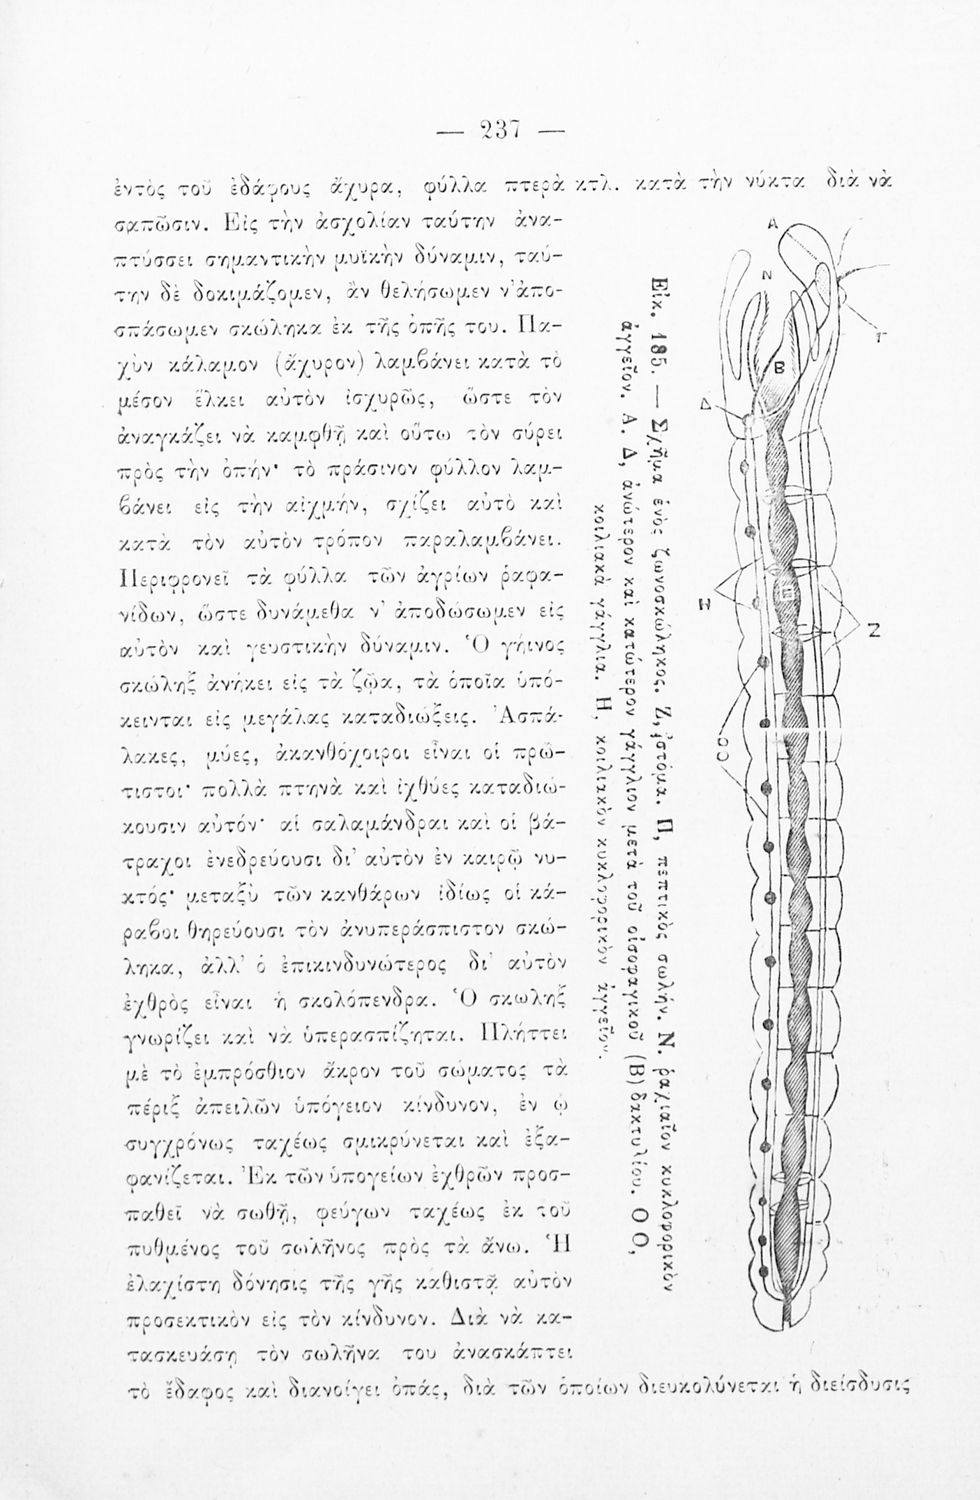 — 237 —
ἐντὸς τοῦ ἐδάφους ἄχυρα, φύλλα πτερὰ κτλ. κατὰ τὴν νύκτα διὰ νὰ
σαπῶσιν. Εἰς τὴν ἀσχολίαν ταύτην ἀνα-
πτύσσει σημαντικὴν μυϊκὴν δύναμιν, ταύ-
την δὲ δοκιμάζομεν, ἂν θελήσωμεν ν’ ἀπο-
σπάσωμεν σκώληκα ἐκ τῆς ὀπῆς του. Πα-
χὺν κάλαμον (ἄχυρον) λαμβάνει κατὰ τὸ
μέσον ἕλκει αὐτὸν ἰσχυρῶς, ὥστε τὸν
ἀναγκάζει νὰ καμφθῇ καὶ οὕτω τὸν σύρει
πρὸς τὴν ὀπήν· τὸ πράσινον φύλλον λαμ-
βάνει εἰς τὴν αἰχμήν, σχίζει αὐτὸ καὶ
κατὰ τὸν αὐτὸν τρόπον παραλαμβάνει.
Περιφρονεῖ τὰ φύλλα τῶν ἀγρίων ῥαφα-
νίδων, ὥστε δυνάμεθα ν’ ἀποδώσωμεν εἰς
αὐτὸν καὶ γευστικὴν δύναμιν. Ὁ γήινος
σκώληξ ἀνήκει εἰς τὰ ζῷα, τὰ ὁποῖα ὑπό-
κεινται εἰς μεγάλας καταδιώξεις. Ἀσπά-
λακες, μύες, ἀκανθόχοιροι εἶναι οἱ πρώ-
τιστοι· πολλὰ πτηνὰ καὶ ἰχθύες καταδιώ-
κουσιν αὐτόν· αἱ σαλαμάνδραι καὶ οἱ βά-
τραχοι ἐνεδρεύουσι δι’ αὐτὸν ἐν καιρῷ νυ-
κτός· μεταξὺ τῶν κανθάρων ἰδίως οἱ κά-
ραβοι θηρεύουσι τὸν ἀνυπεράσπιστον σκώ-
ληκα, ἀλλ’ ὁ ἐπικινδυνώτερος δι’ αὐτὸν
ἐχθρὸς εἶναι ἡ σκολόπενδρα. Ὁ σκωληξ
γνωρίζει καὶ νὰ ὑπερασπίζηται. Πλήττει
μὲ τὸ ἐμπρόσθιον ἄκρον τοῦ σώματος τὰ
πέριξ ἀπειλῶν ὑπόγειον κίνδυνον, ἐν ᾧ
συγχρόνως ταχέως σμικρύνεται καὶ ἐξα-
φανίζεται. Ἐκ τῶν ὑπογείων ἐχθρῶν προσ-
παθεῖ νὰ σωθῇ, φεύγων ταχέως ἐκ τοῦ
πυθμένος τοῦ σωλῆνος πρὸς τὰ ἄνω. Ἡ
ἐλαχίστη δόνησις τῆς γῆς καθιστᾷ αὐτὸν
προσεκτικὸν εἰς τὸν κίνδυνον. Διὰ νὰ κα-
τασκευάσῃ τὸν σωλῆνα του ἀνασκάπτει
τὸ ἔδαφος καὶ διανοίγει ὀπάς, διὰ τῶν ὁποίων διευκολύνεται ἡ διείσδυσις
Εἰκ. 185. — Σχῆμα ἑνὸς ζωνοσκώληκος. Ζ, στόμα. Π, πεπτικὸς σωλήν. Ν. ῥαχιαῖον κυκλοφορικὸν
ἀγγεῖον. Α. Δ, ἀνώτερον καὶ κατώτερον γάγγλιον μετὰ τοῦ οἰσοφαγικοῦ (Β) δακτυλίου. Ο Ο,
κοιλιακὰ γάγγλια. Η, κοιλιακὸν κυκλοφορικὸν ἀγγεῖον.
Α
Ν
Β
Τ
Δ
Ξ
Ζ
ΟΟ